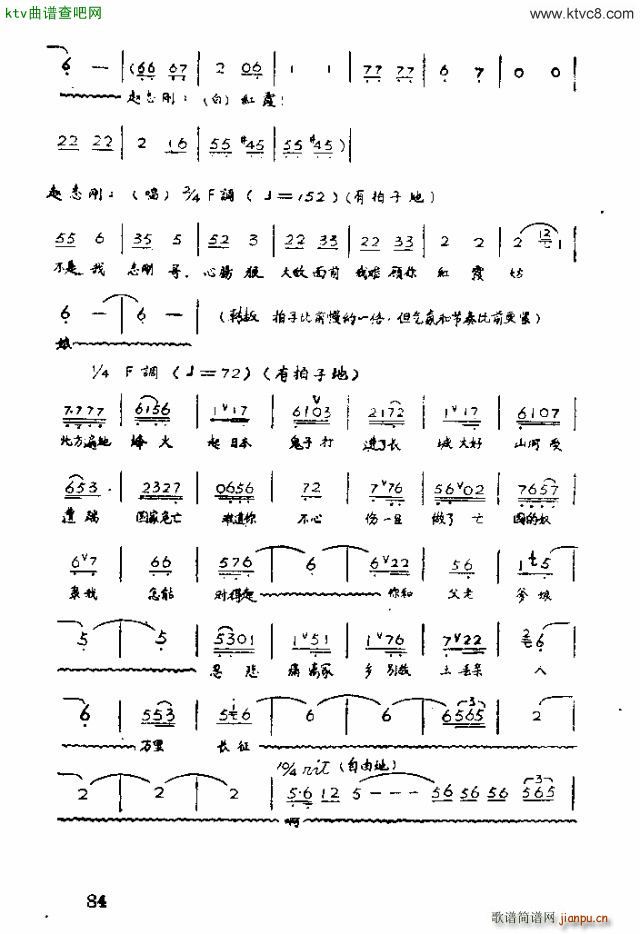 ktv曲谱查吧网 www.ktvc8.com
6 — | (66 67 | 2 06 | 1 1 | 77 77 | 6 7 | 0 0 |
赵志刚：（白）紅霞！
22 22 | 2 16 | 55 #45 | 55 #45) |
赵志刚：（唱）2/4 F調（♩=152）(有拍子地)
55 6 | 35 5 | 52 3 | 22 33 | 22 33 | 2 2 | 2 12 1 |
不是我 志刚哥，心腸狠 大敌面前 我难顾你 紅霞姑
6 — | 6 — | （转板 拍子比前慢的一倍，但气氛和节奏比前更紧）
娘
1/4 F調（♩=72）(有拍子地)
7.777 | 6156 | 1v17 | 6103 | 2172 | 1v17 | 6107
北方遍地 烽火 起日本 鬼子打 进了长 城大好 山河受
653. | 2327 | 0656 | 72 | 7v76 | 56v02 | 7657
遭蹋 国家危亡 难道你 不心 伤一旦 做了亡 国的奴
6v7 | 66 | 576 | 6 | 6 | 6v22 | 56 | 1 5
隶我 怎能 对得起 你和 父老 爹娘
5 | 5 | 5301 | 1v51 | 1v76 | 7v22 | 2 6
忍悲 痛离家 乡别故 土丢亲 人
6 | 553 | 5 6 | 6 | 6 | 6565 | 2
万里 长征
10/4 rit (自由地)
2 | 2 | 2 | 5·6 12 5 — — — 56 56 56 565
啊
84
歌谱简谱网
jianpu.cn